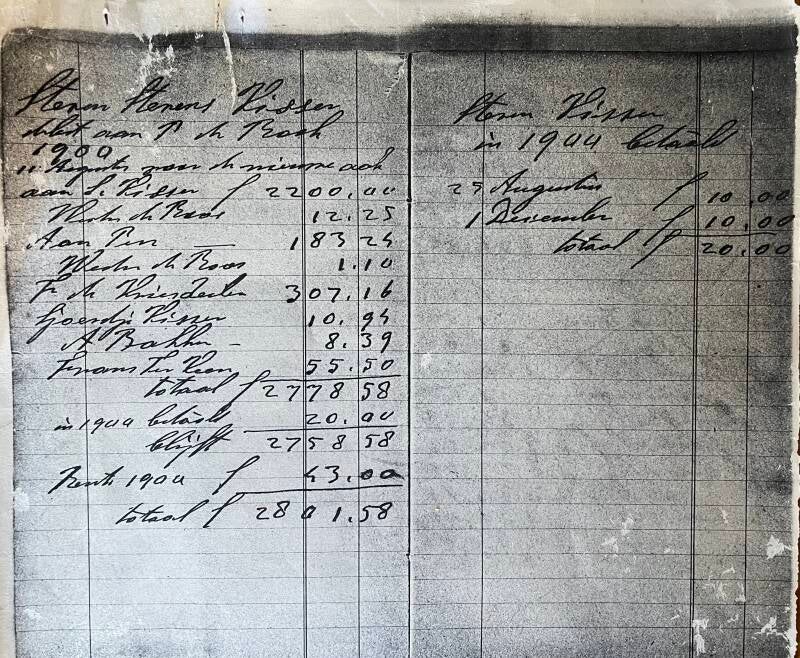 Steven Stevens Visser
debet aan P. de Rook
1900
11 Augustus voor de nieuwe aak
aan S. Visser f 2200.00
Wede de Roos 12.25
Aan Pen — 183 24
Wede de Roos 1.10
F de Vries Zeilen 307.16
Sjoerdje Visser 10.94
A Bakker — 8.39
Frans ter Veen 55.50
totaal f 2778 58
in 1900 betaald 20.00
blijft 2758 58
Rente 1900 f 43.00
totaal f 2801.58
Steven Visser
in 1900 betaald
25 Augustus f 10.00
1 December f 10.00
totaal f 20.00